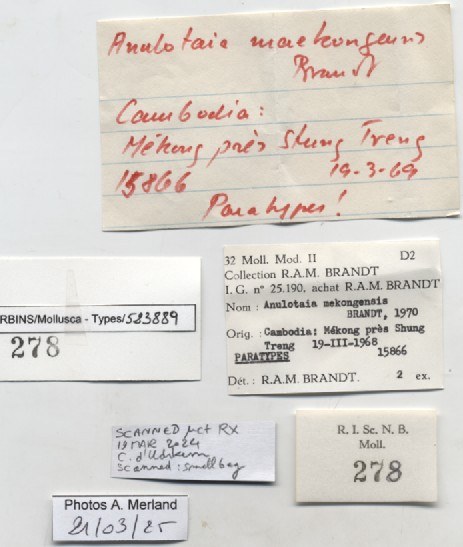 Anulotaia maekongensis
Brandt
Cambodia:
Mékong près Stung Treng
15866 19-3-69
Paratypes!
32 Moll. Mod. II D2
Collection R.A.M. BRANDT
I. G. n° 25.190, achat R.A.M. BRANDT
Nom : Anulotaia mekongensis
BRANDT, 1970
Orig. : Cambodia: Mékong près Shung
Treng 19-III-1968
PARATYPES 15866
Dét. : R.A.M. BRANDT. 2 ex.
RBINS/Mollusca - Types/523889
278
SCANNED µct RX
19 MAR 2024
C. d'Udekem
Scanned: small bag
R. I. Sc. N. B.
Moll.
278
Photos A. Merland
21/03/25